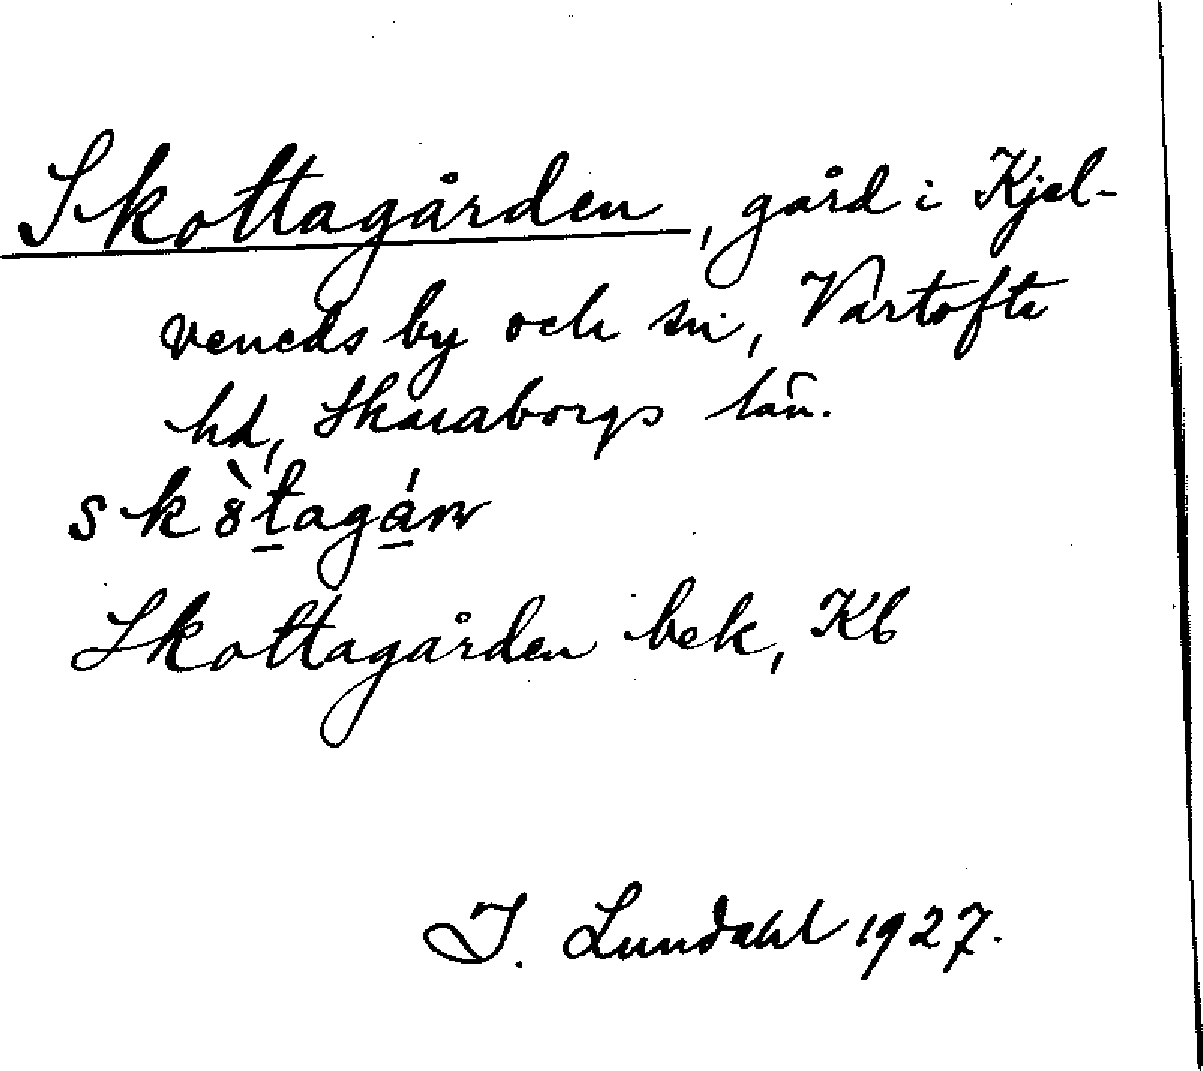 Skottagården, gård i Kjel-
veneds by och sn, Vartofta
hd, Skaraborgs län.
sk8̀t̲agá̲n
Skottagården bek, Kb
I. Lundahl 1927.